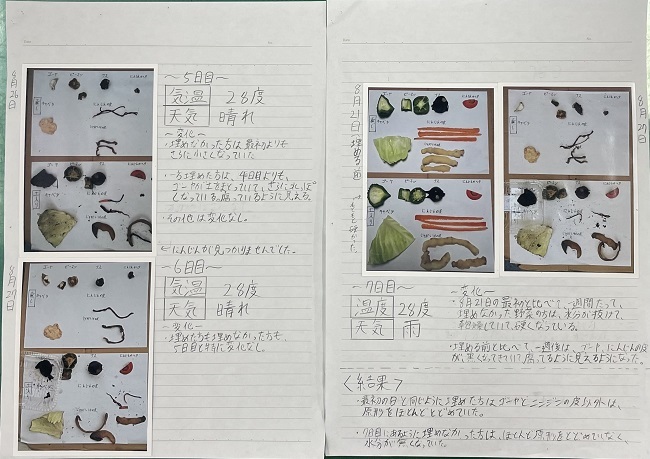 8月26日
〜5日目〜
気温 28度
天気 晴れ
〜変化〜
・埋めなかった方は最初よりも
さらに小さくなっていた
・一方埋めた方は、4日目よりも、
しなっている。腐っているように見える。
・その他は変化なし。
←にんじんが見つかりませんでした。
8月27日
〜6日目〜
気温 28度
天気 晴れ
〜変化〜
・埋めた方も埋めなかった方も
5日目と特に変化なし。
8月21日(埋める前)
〜7日目〜
温度 28度
天気 雨
〜変化〜
・8月21日の最初と比べて、一週間たって、
埋めなかった野菜の方は、水分が抜けて、
乾燥していて、硬くなっている。
・埋める前と比べて、一週後は、
が、黒くなってきていて腐ってるように見えるようになった。
<結果>
・最初の日と同じように埋めた方はゴーヤとニンジンの皮以外は、
原形をほとんどとどめていた。
・7日目にあるように埋めなかった方は、ほとんど原形をとどめていなく、
水分が無くなっていた。